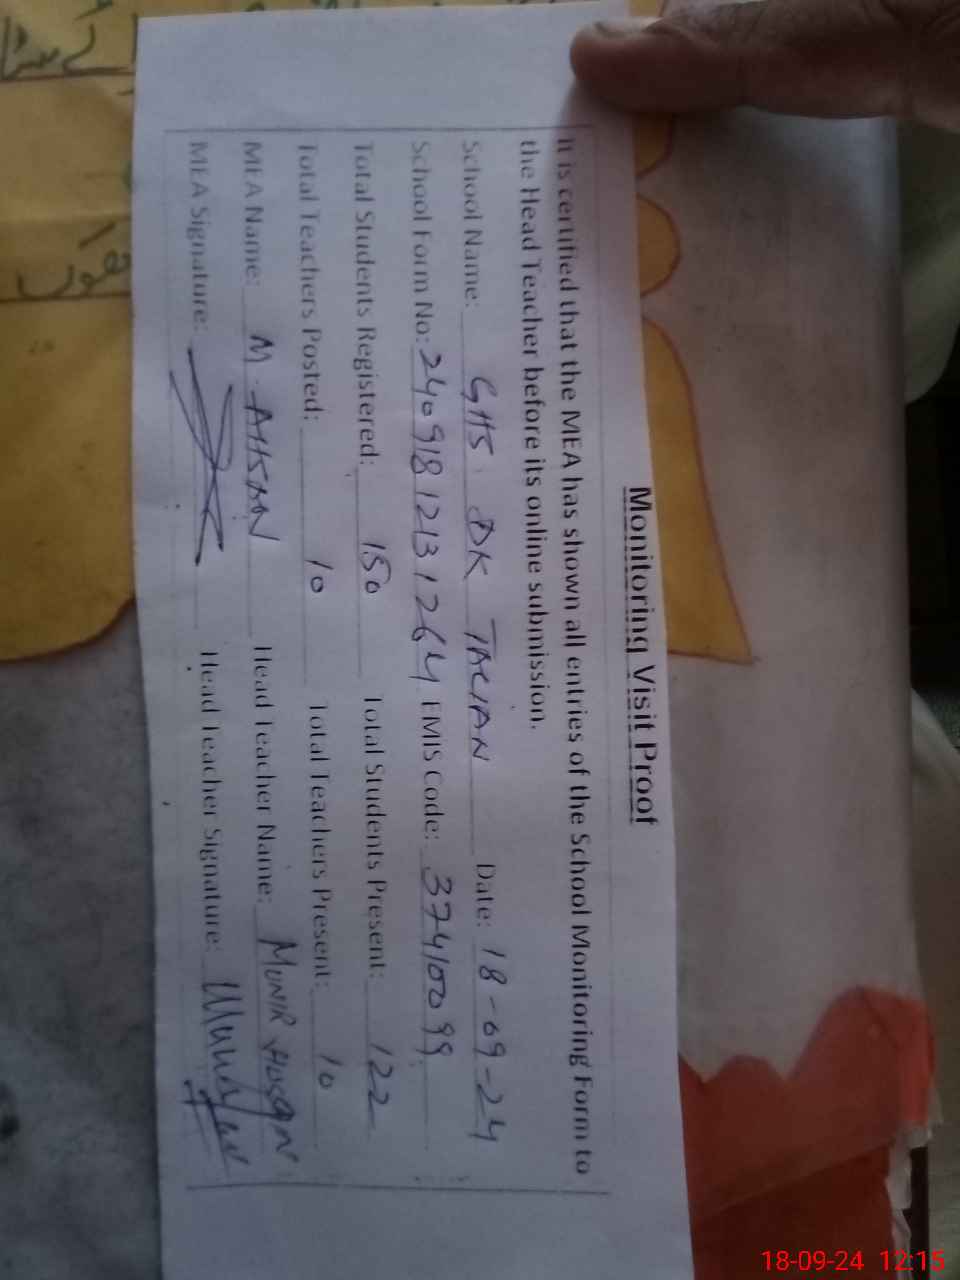 Monitoring Visit Proof
It is certified that the MEA has shown all entries of the School Monitoring Form to
the Head Teacher before its online submission.
School Name: GHS DK TALIAN Date: 18-09-24
School Form No: 24091812131264 EMIS Code: 37410099
Total Students Registered: 150 Total Students Present: 122
Total Teachers Posted: 10 Total Teachers Present: 10
MEA Name: M. AHSAN Head Teacher Name: MUNIR HUSSAN
MEA Signature: Head Teacher Signature:
18-09-24 12:15